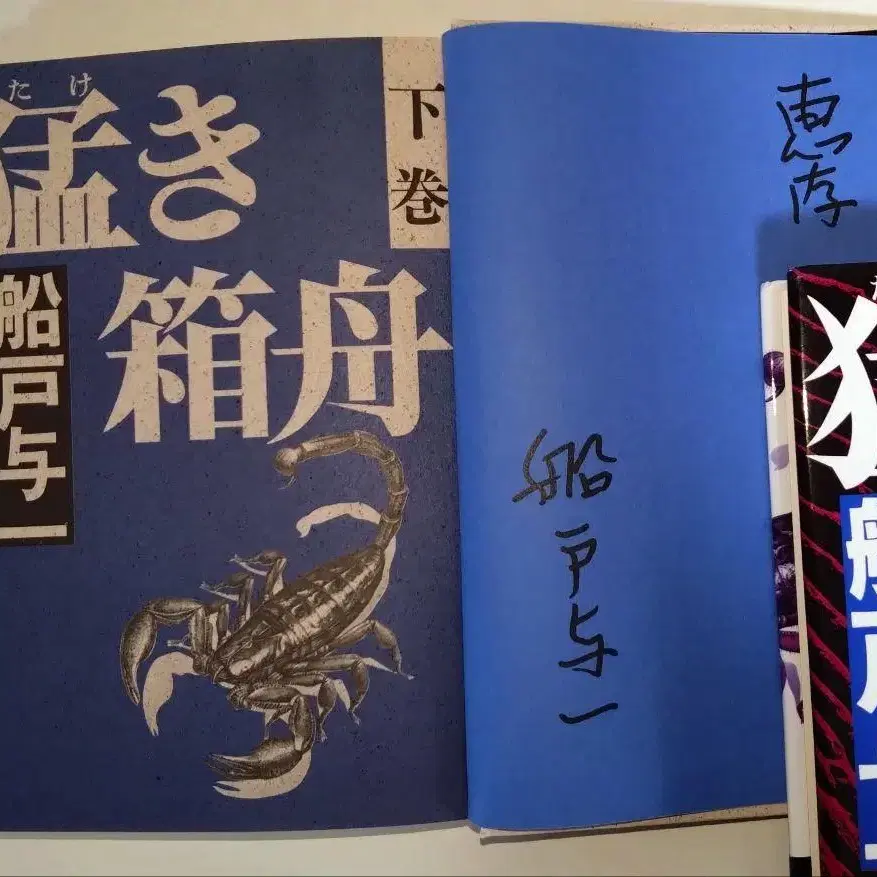 たけ
猛き
箱舟
下巻
船戸与一
恵存
船戸与一
猛
船戸